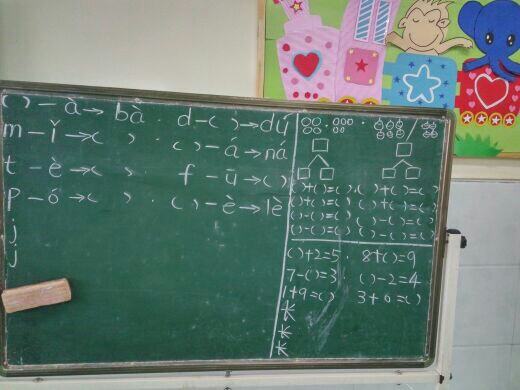 ( ) - à → bà · d - ( ) → dú
m - ǐ → ( ) , ( ) - á → ná
t - è → ( ) , f - ū → ( )
p - ó → ( ) , ( ) - è → lè
j
j
( ) + ( ) = ( ) . ( ) + ( ) = ( )
( ) + ( ) = ( ) ( ) + ( ) = ( )
( ) - ( ) = ( ) ( ) - ( ) = ( )
( ) - ( ) = ( ) ( ) - ( ) = ( )
( ) + 2 = 5 . 8 + ( ) = 9
7 - ( ) = 3 ( ) - 2 = 4
1 + 9 = ( ) 3 + 6 = ( )